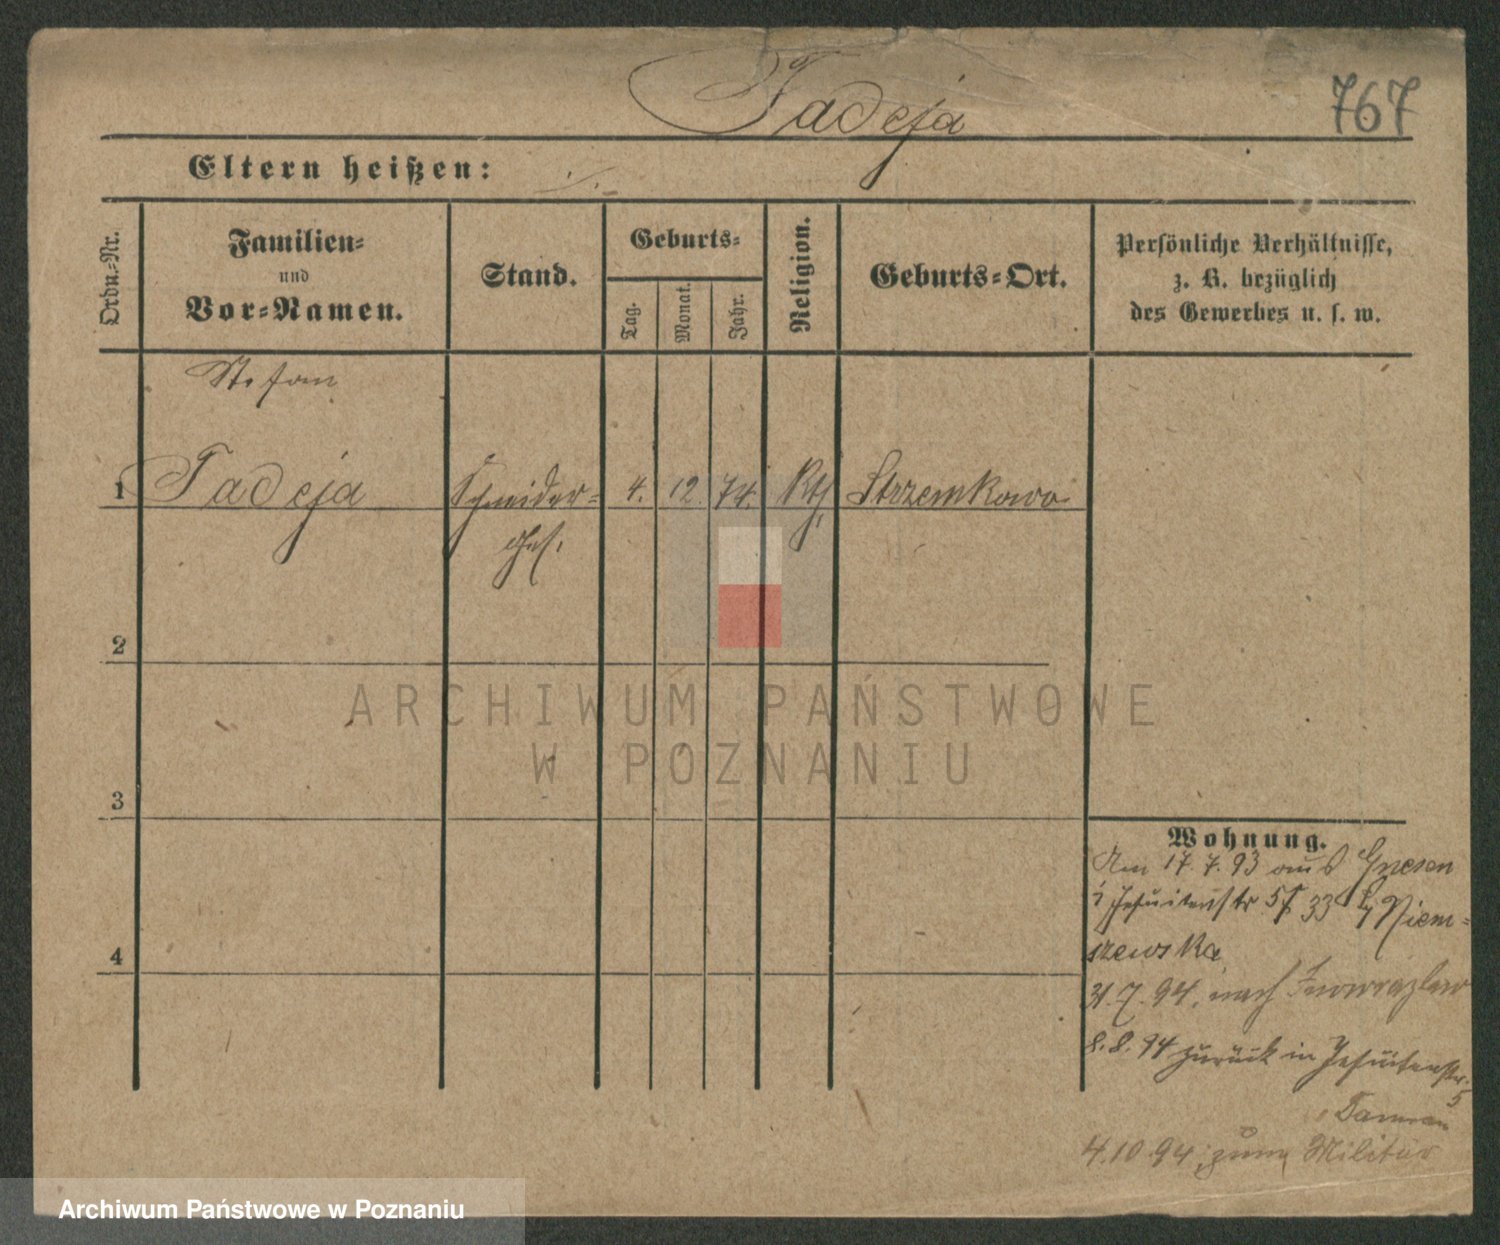 Tadeja
767
Eltern heißen: ./.
Ordn.-Nr.
Familien-
und
Vor-Namen.
Stand.
Geburts-
Tag.
Monat.
Jahr.
Religion.
Geburts-Ort.
Persönliche Verhältnisse,
z. B. bezüglich
des Gewerbes u. s. w.
Stefan
1 Tadeja Schneider- 4. 12 74. Kth. Strzemkowo
ges.
2
3
4
Wohnung.
Am 17. 7. 93 aus Gnesen
i Jesuitenstr 5 33 Niem-
szewska
31. 7. 94. nach Inowrazlaw
8. 8. 94 zurück in Jesuitenstr.
5
4. 10. 94. zum Militär
ARCHIWUM PAŃSTWOWE
W POZNANIU
Archiwum Państwowe w Poznaniu